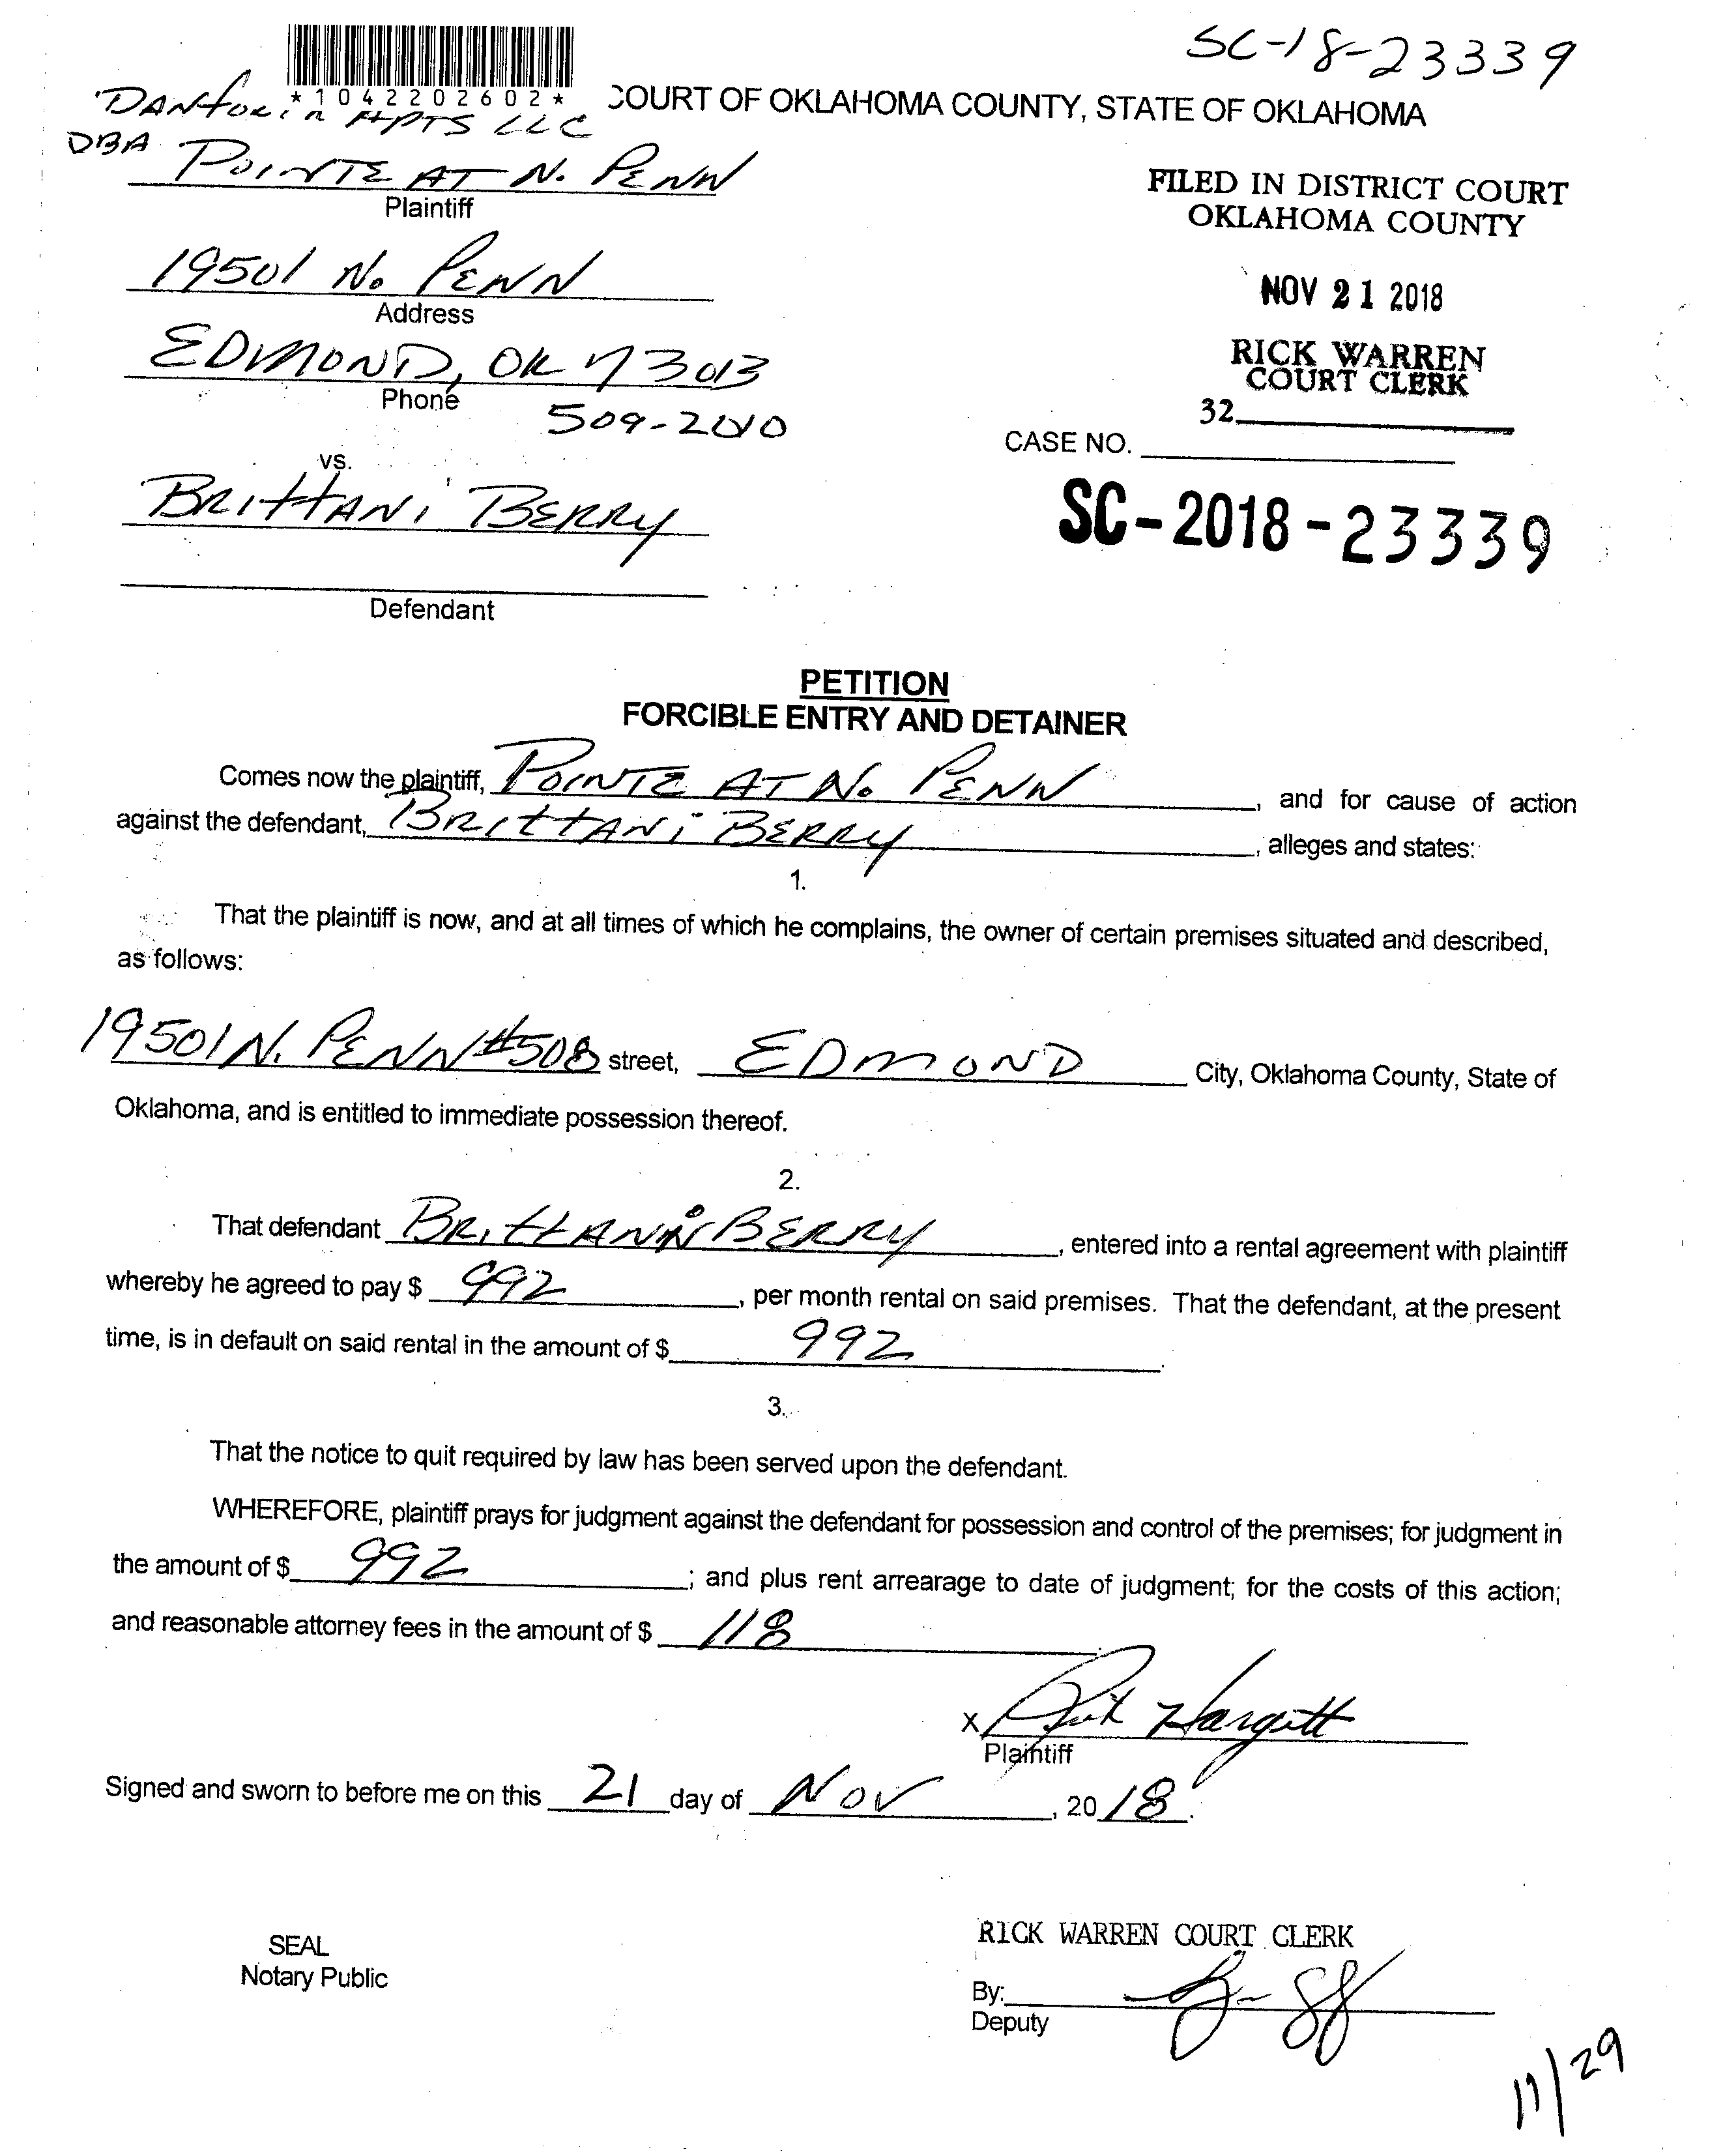 SC-18-23339
*1042202602*
APTS LLC
COURT OF OKLAHOMA COUNTY, STATE OF OKLAHOMA
DBA POINTE AT N. PENN
Plaintiff
FILED IN DISTRICT COURT
OKLAHOMA COUNTY
19501 No PENN
Address
NOV 21 2018
EDMOND, OK 73013
Phone
509-2010
RICK WARREN
COURT CLERK
32
CASE NO.
vs.
BRITTANI BERRY
SC-2018-23339
Defendant
PETITION
FORCIBLE ENTRY AND DETAINER
Comes now the plaintiff, POINTE AT No. PENN, and for cause of action
against the defendant, BRITTANI BERRY, alleges and states:
1.
That the plaintiff is now, and at all times of which he complains, the owner of certain premises situated and described,
as follows:
19501 N. PENN #508 street, EDMOND City, Oklahoma County, State of
Oklahoma, and is entitled to immediate possession thereof.
2.
That defendant BRITTANI BERRY, entered into a rental agreement with plaintiff
whereby he agreed to pay $ 992, per month rental on said premises. That the defendant, at the present
time, is in default on said rental in the amount of $ 992.
3.
That the notice to quit required by law has been served upon the defendant.
WHEREFORE, plaintiff prays for judgment against the defendant for possession and control of the premises; for judgment in
the amount of $ 992; and plus rent arrearage to date of judgment; for the costs of this action;
and reasonable attorney fees in the amount of $ 118.
X Rick Hargett
Plaintiff
Signed and sworn to before me on this 21 day of Nov, 2018.
SEAL
Notary Public
RICK WARREN COURT CLERK
By:
Deputy
11/29